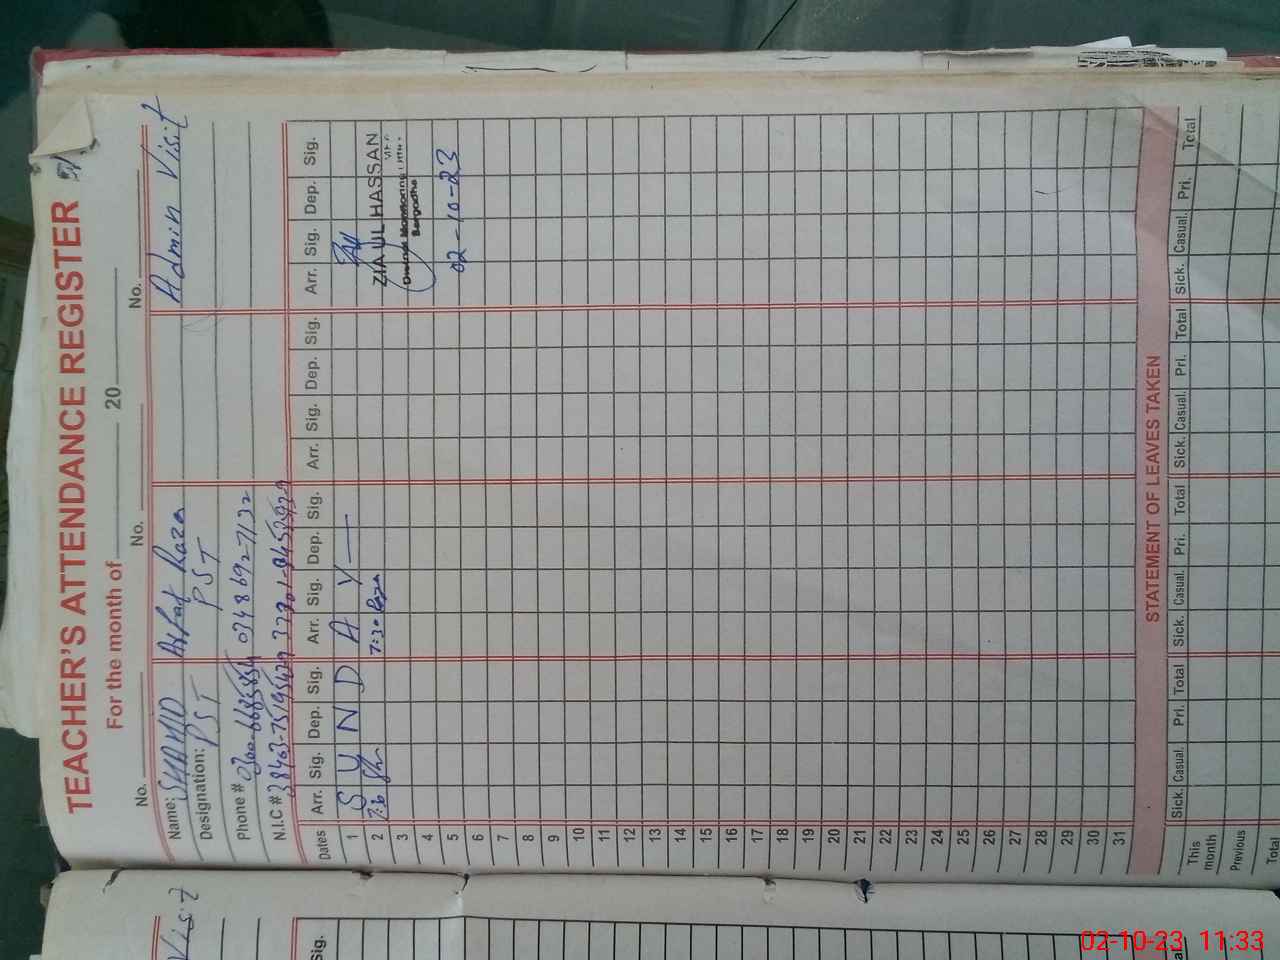 TEACHER'S ATTENDANCE REGISTER
For the month of 20
No. No. No.
Name: SHAHID Asfar Raza Admin Visit
Designation: PST PST
Phone # 0348692-7132
N.I.C #
Dates Arr. Sig. Dep. Sig. Arr. Sig. Dep. Sig. Arr. Sig. Dep. Sig. Arr. Sig. Dep. Sig.
1 S U N D A Y
2 7:30 Raza ZIA UL HASSAN
3 Monitoring
Sargodha
4
5 02-10-23
6
7
8
9
10
11
12
13
14
15
16
17
18
19
20
21
22
23
24
25
26
27
28
29
30
31
STATEMENT OF LEAVES TAKEN
Sick. Casual. Pri. Total Sick. Casual. Pri. Total Sick. Casual. Pri. Total Sick. Casual. Pri. Total
This month
Previous
Total
Visit
Sig.
02-10-23 11:33